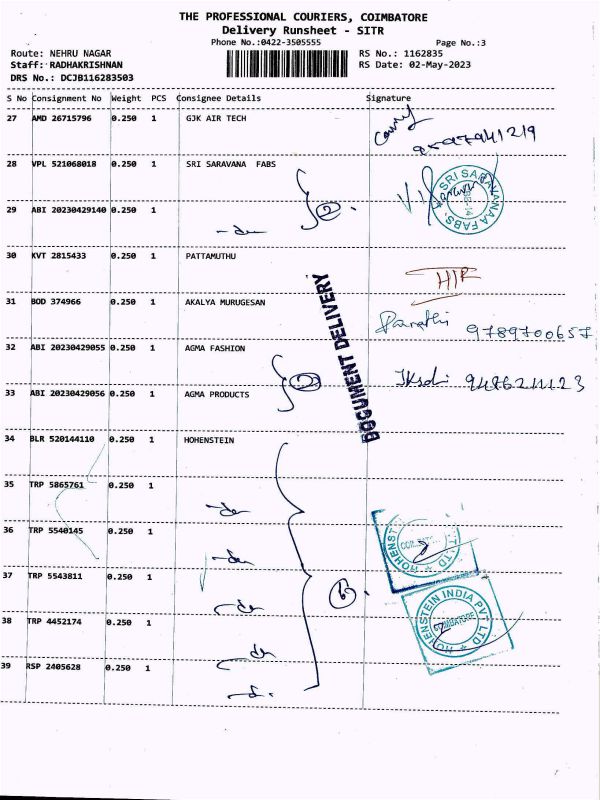 THE PROFESSIONAL COURIERS, COIMBATORE
Delivery Runsheet - SITR
Phone No.:0422-3505555 Page No.:3
Route: NEHRU NAGAR RS No.: 1162835
Staff: RADHAKRISHNAN RS Date: 02-May-2023
DRS No.: DCJB116283503
S No Consignment No Weight PCS Consignee Details Signature
27 AMD 26715796 0.250 1 GJK AIR TECH
28 VPL 521068018 0.250 1 SRI SARAVANA FABS
SRI SARAVANAA FABS.
29 ABI 20230429140 0.250 1
2
30 KVT 2815433 0.250 1 PATTAMUTHU
31 BOD 374966 0.250 1 AKALYA MURUGESAN
9789700657
DOCUMENT DELIVERY
32 ABI 20230429055 0.250 1 AGMA FASHION
2
33 ABI 20230429056 0.250 1 AGMA PRODUCTS
34 BLR 520144110 0.250 1 HOHENSTEIN
35 TRP 5865761 0.250 1
36 TRP 5540145 0.250 1
37 TRP 5543811 0.250 1
6
38 TRP 4452174 0.250 1
HOHENSTEIN INDIA PVT LTD
COIMBATORE
39 RSP 2405628 0.250 1